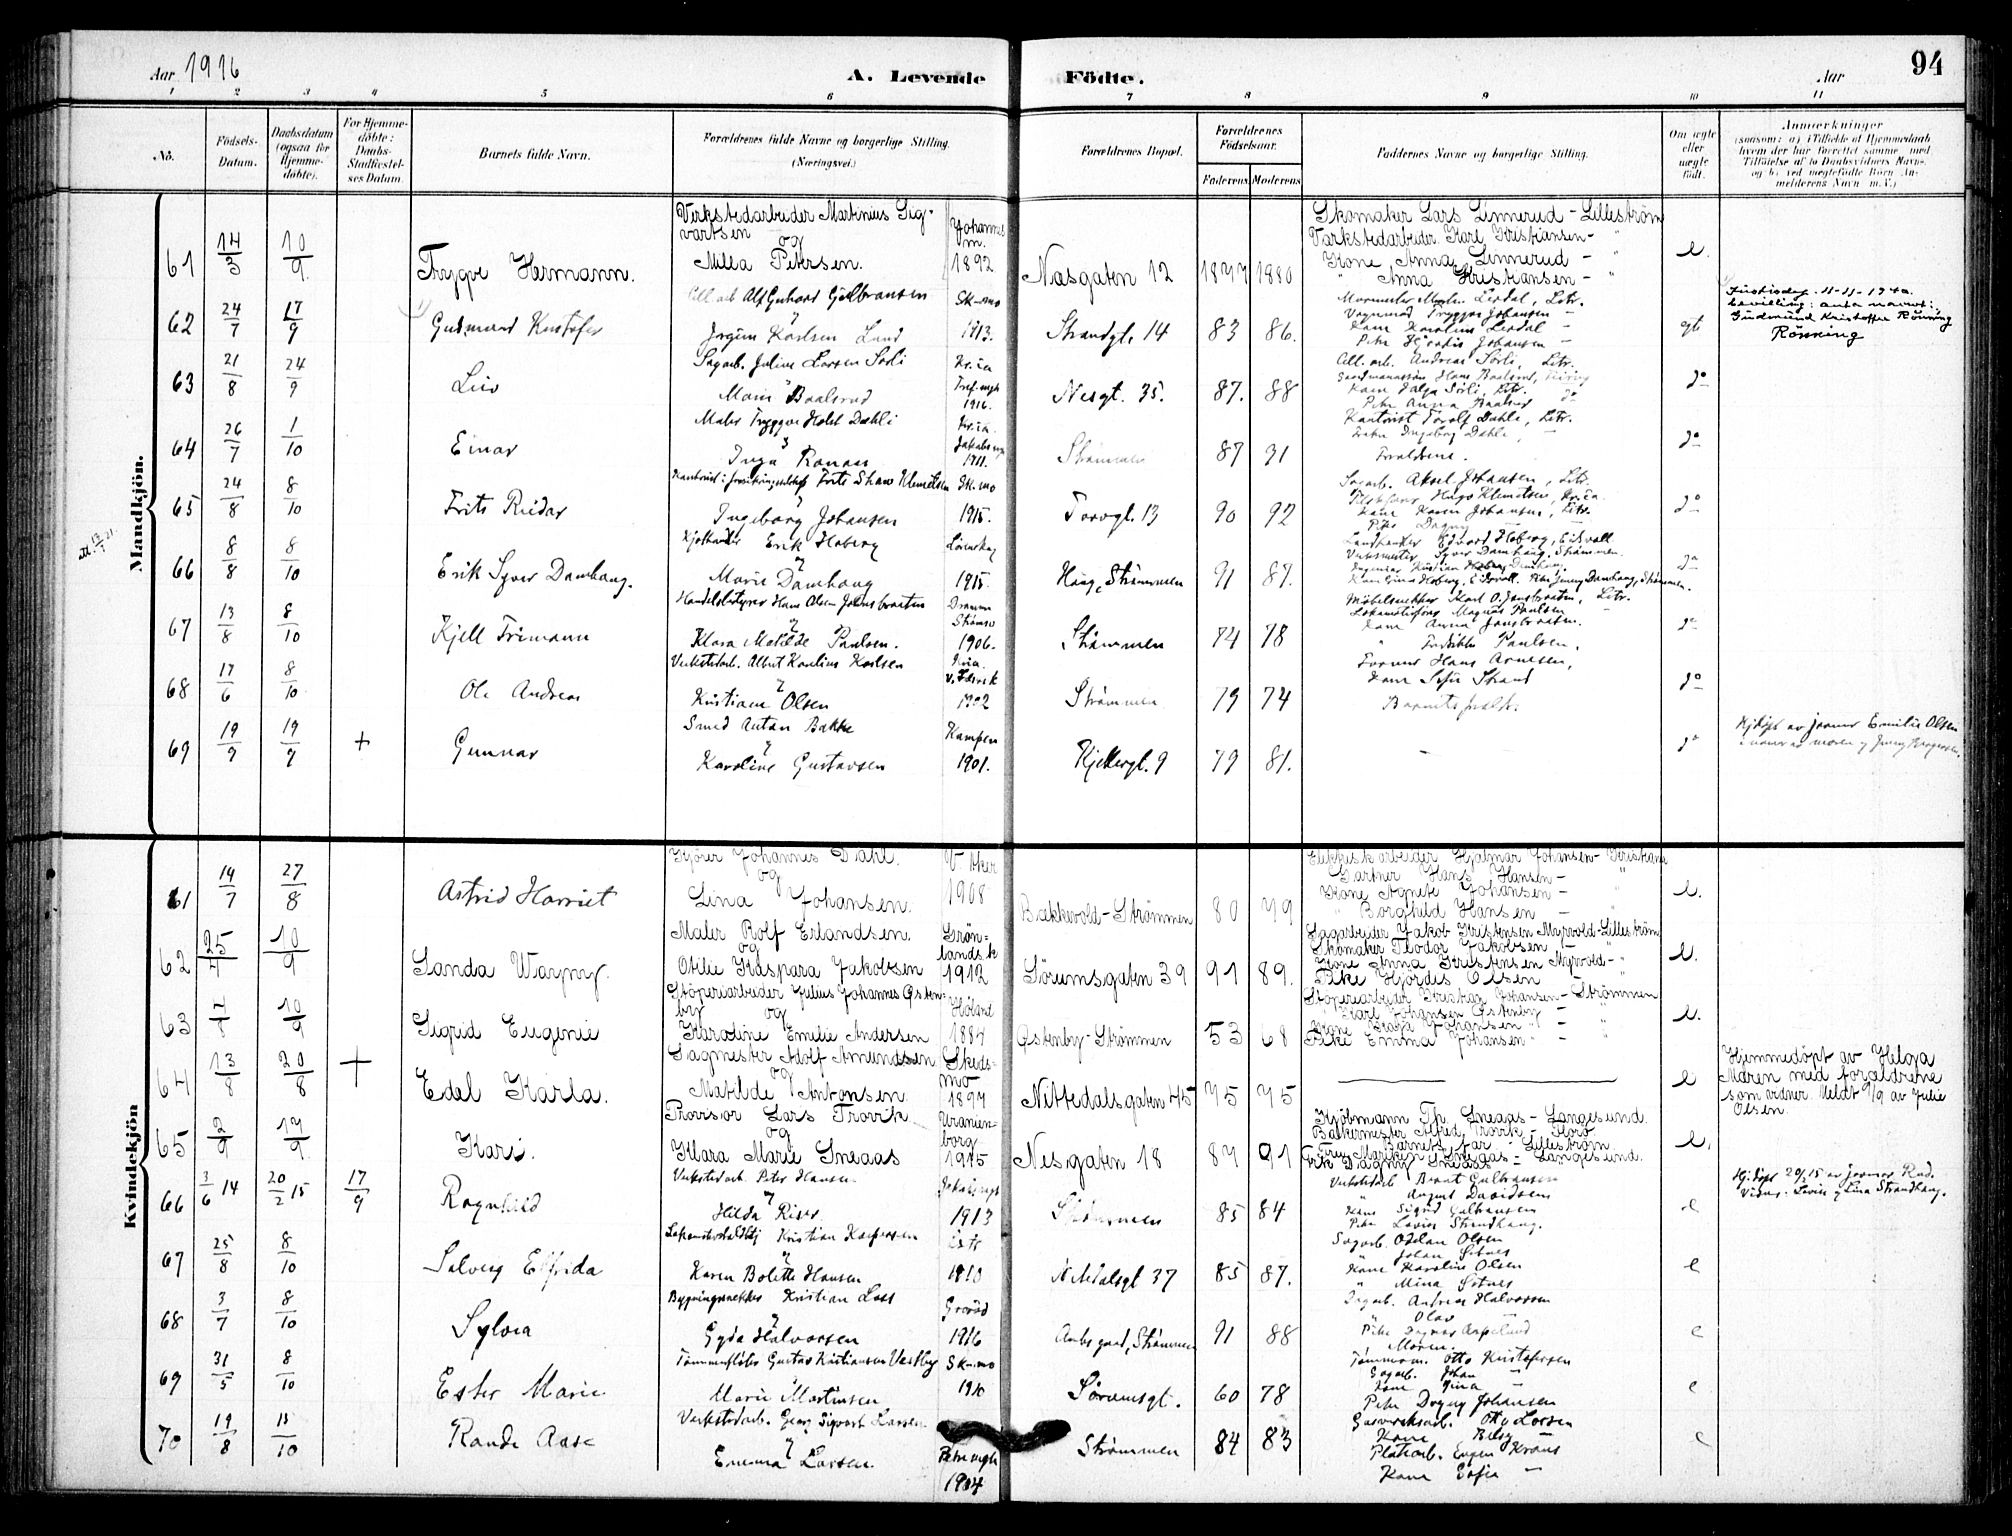 Aar 1916
A. Levende Födte.
Aar
94
1 2 3 4 5 6 7 8 9 10 11
No.
Födsels-Datum.
Daabsdatum (ogsaa for Hjemme-döbte).
For Hjemme-döbte: Daabs-Stadfæstel-ses Datum.
Barnets fulde Navn.
Forældrenes fulde Navne og borgerlige Stilling. (Næringsvei.)
Forældrenes Bopæl.
Forældrenes Födselsaar.
Faderens Moderens
Faddernes Navne og borgerlige Stilling.
Om ægte eller uægte födt.
Anmærkninger
(saasom: a) i Tilfælde af Hjemmedaab hvem der har forrettet samme, med Tilföielse af to Daabsvidners Navn, og b) ved uægtefödte Börn An-melderens Navn m. V.)
Mandkjön.
61 14/3 10/9 Trygve Hermann.
Verkstedarbeider Martinius Sig-
vartsen og
Milla Petersen.
Johannes m. 1892
Næsgaten 12 1877 1880
Skomaker Lars Linnerud - Lilleström
Værkstedarbeider Karl Kristiansen - "
Kone Anna Linnerud - "
" Anna Kristiansen - "
e.
62 24/7 17/9 Gudmund Kristofer
Cell. arb. Alf Gehard Gulbransen
Jörgine Karlsen Lund
Sk-mo 1913.
Strandgt. 14 83 86.
Murmester Lerdal, Lstr.
Vognmand Tryggve Johansen -
Kone Karoline Lerdal -
Pike Hjördis Johansen -
egte
Justisdep. 11-11-1940
bevilling: anta navnet:
Gudmund Kristoffer Rönning
Rönning
63 21/8 24/9 Liv
Sagarb. Julius Larsen Sörli
Marie Baalsrud
Kr.ia Tref. mgh 1916.
Nesgt. 35. 87. 88
Cell. arb. Andreas Sörli, Lstr.
Gaardmannssön Hans Baalsrud,
Kone Helga Sörli, Lstr.
Pike Anna Baalsrud do
do
64 26/7 1/10 Einar
Maler Tryggve Holst Dahli
Inga Ranaas
Kr.ia. Jakobs m 1911.
Strömmen 87 91
Kontorist Torolf Dahli, Lstr.
Frøken Ingeborg Dahli, -
Foreldrene.
do
65 24/8 8/10 Frits Reidar
Kontorist i forsikringsselskap Frits Shaw Klemetsen
Ingeborg Johansen
Sk-mo 1915.
Torvgt. 13 90 92
Sagarb. Aksel Johansen, Lstr.
Hugo Klemetsen, Kr.ia.
Kone Karen Johansen, Lstr.
Pike Dagny
do
66 8/8 8/10 Erik Syver Damhaug.
Kjöbmand Erik Hoberg
Marie Damhaug
Lörenskog 1915.
Haug, Strömmen 91 87.
Landhandler Edvard Hoberg, Eidsvoll
Verksmester Syver Damhaug, Strömmen.
Ingeniör Kristian Damhaug.
Kone Gina Hoberg, Eidsvoll. Pike Jenny Damhaug, Strömmen.
do
67 13/8 8/10 Kjell Frimann
Handelsbestyrer Hans Olsen Jonsbraaten
Klara Matilde Paulsen.
Dramm Strömsö 1906.
Strömmen 74 78
Möbelsnekker Karl O. Jonsbraaten, Lstr.
Lokomotivförer Magnus Paulsen
Kone Anna Jonsbraaten.
" Fredrikke Paulsen.
do
68 17/6 8/10 Ole Andreas
Verkstedarb. Albert Karelius Karlsen
Kristiane Olsen
1902
Strömmen 79 74
Former Hans Arnesen,
Kone Sofie Strand
Barnets foreldr.
do
69 19/9 19/9 + Gunnar
Smed Anton Bakke
Karoline Gustavsen
Kampen 1901.
Kjellergt. 9 79 81.
-
do
Hj.döpt av jormor Emilie Olsen
i nærvær av moren og Jenny
Kvindekjön
61 14/7 27/8 Astrid Harriet
Kjörer Johannes Dahl.
og
Lina Johansen.
V. Aker 1908
Bækkevold - Strömmen 80 79
Elektrisk arbeider Hjalmar Johansen - Kristiania
Gartner Hans Hansen - "
Kone Agnete Johansen - "
" Borghild Hansen - "
e.
62 25/7 10/9 Sanda Warny.
Maler Rolf Erlandsen.
og
Otilie Kaspara Jakobsen
Grön-lands k 1912
Sörumsgaten 39 91 89.
Sagarbeider Jakob Kristensen Myrvold - Lilleström
Skomaker Teodor Jakobsen, - "
Kone Anna Kristensen Myrvold - "
Pike Hjördis Olsen
e.
63 7/8 10/9 Sigrid Eugenie
Stöperiarbeider Julius Johannes Østen-
by og
Karoline Emelie Andersen
Höland 1887
Østenby - Strömmen 53 68
Stöperiarbeider Kristian Johansen - Strömmen
" Karl Johansen Östenby - "
Kone Kaja Johansen " - "
Pike Emma Johansen " - "
e.
64 13/8 20/8 + Edel Karla.
Sagmester Adolf Amundsen
og
Matilde Antonsen
Skeds-mo 1897
Nittedalsgaten 45 75 75
e
Hjemmedöpt av Helga
Maren med forældrene
som vidner. Meldt 1/9 av Julie
Olsen.
65 2/9 17/9 Kari.
Provisor Lars Trovik
og
Klara Marie Sneaas
Uranien-borg 1915
Nesgaten 18 87 91
Kjöbmann Th. Sneaas - Langesund.
Bakermester Alfred Trovik - Florö
Barnets far - Lilleström
Frk Dagny Sneaas - Langesund.
e.
66 3/6 14 20/2 15 17/9 Ragnhild
Verkstedarb. Peter Hansen
Hilda Riser
Jakobs mgh 1913
Strömmen 85 84
Verkstedarb. Bernt Gulbransen
" August Davidsen
Kone Sigrid Gulbransen
Pike Lovise Strandhaug.
e
Hj. döpt 20/2 15 av jormor Rud.
Vidner: Lovise og Lina Strandhaug.
67 25/8 8/10 Solveig Elfrida
Kristian Kaspersen
Karen Bolette Hansen
Lstr 1910
Nitedalsgt 37 85 87.
Sagarb. Oskar Olsen
" Johan
Kone Karoline Olsen
" Mina
e
68 3/7 8/10 Sylvia
Bygningssnekker Kristian Loss
Gyda Halvorsen
Grorud 1916
Aaby gaard, Strömmen 91 88
Sagarb. Andreas Halvorsen
" Olav
Pike Dagmar Aspelund
Moren.
e
69 31/5 8/10 Ester Marie
Tömmerfløter Gustav Kristiansen Vestby
Marie Martinsen
Sk-mo 1910
Sörumsgt. 60 78
Tömmerm. Otto Kristofersen
Sagarb. Johan -
Kone Gina -
Pike Dagny Johansen
e
70 19/8 15/10 Randi Aase
Verkstedarb. Georg Sigvart Larsen
Emma Larsen
Petri mgh 1904
Strömmen 84 83
Gasverksarb. Otto Larsen
Kone Betsy -
Platearb. Eugen Kraus
Kone Sofie -
e